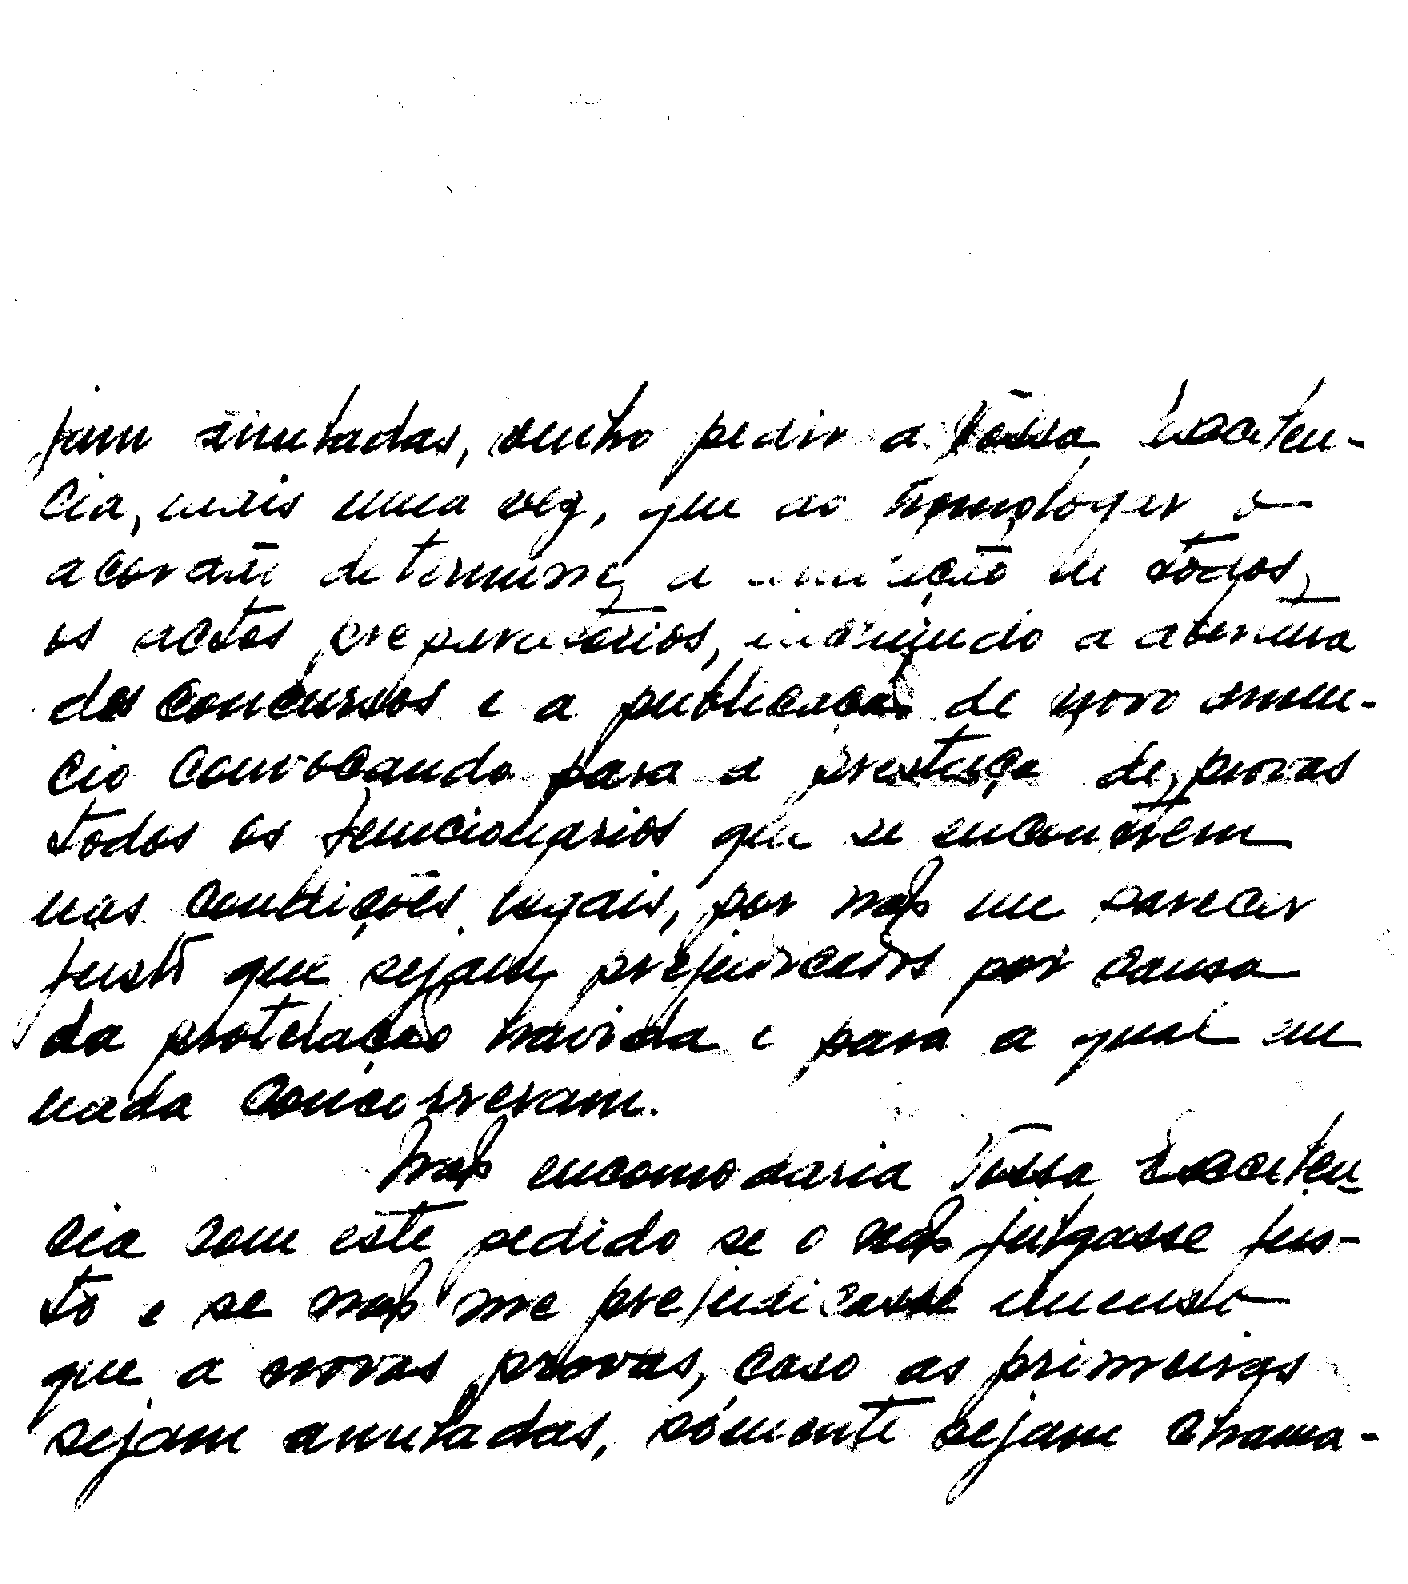 jam anuladas, venho pedir a Vossa Excelen-
cia, mais uma vez, que ao homologar o
acordão determine a anulação de todos
os actos preparatorios, incluindo a abertura
dos concursos e a publicação de novo anun-
cio convocando para a prestação de provas
todos os funcionarios que se encontrem
nas condições legais, por não me parecer
justo que sejam prejudicados por causa
da protelação havida e para a qual em
nada concorreram.
Não encomodaria Vossa Excelen-
cia com este pedido se o não julgasse jus-
to e se não me prejudicasse imenso
que a novas provas, caso as primeiras
sejam anuladas, sómente sejam chama-